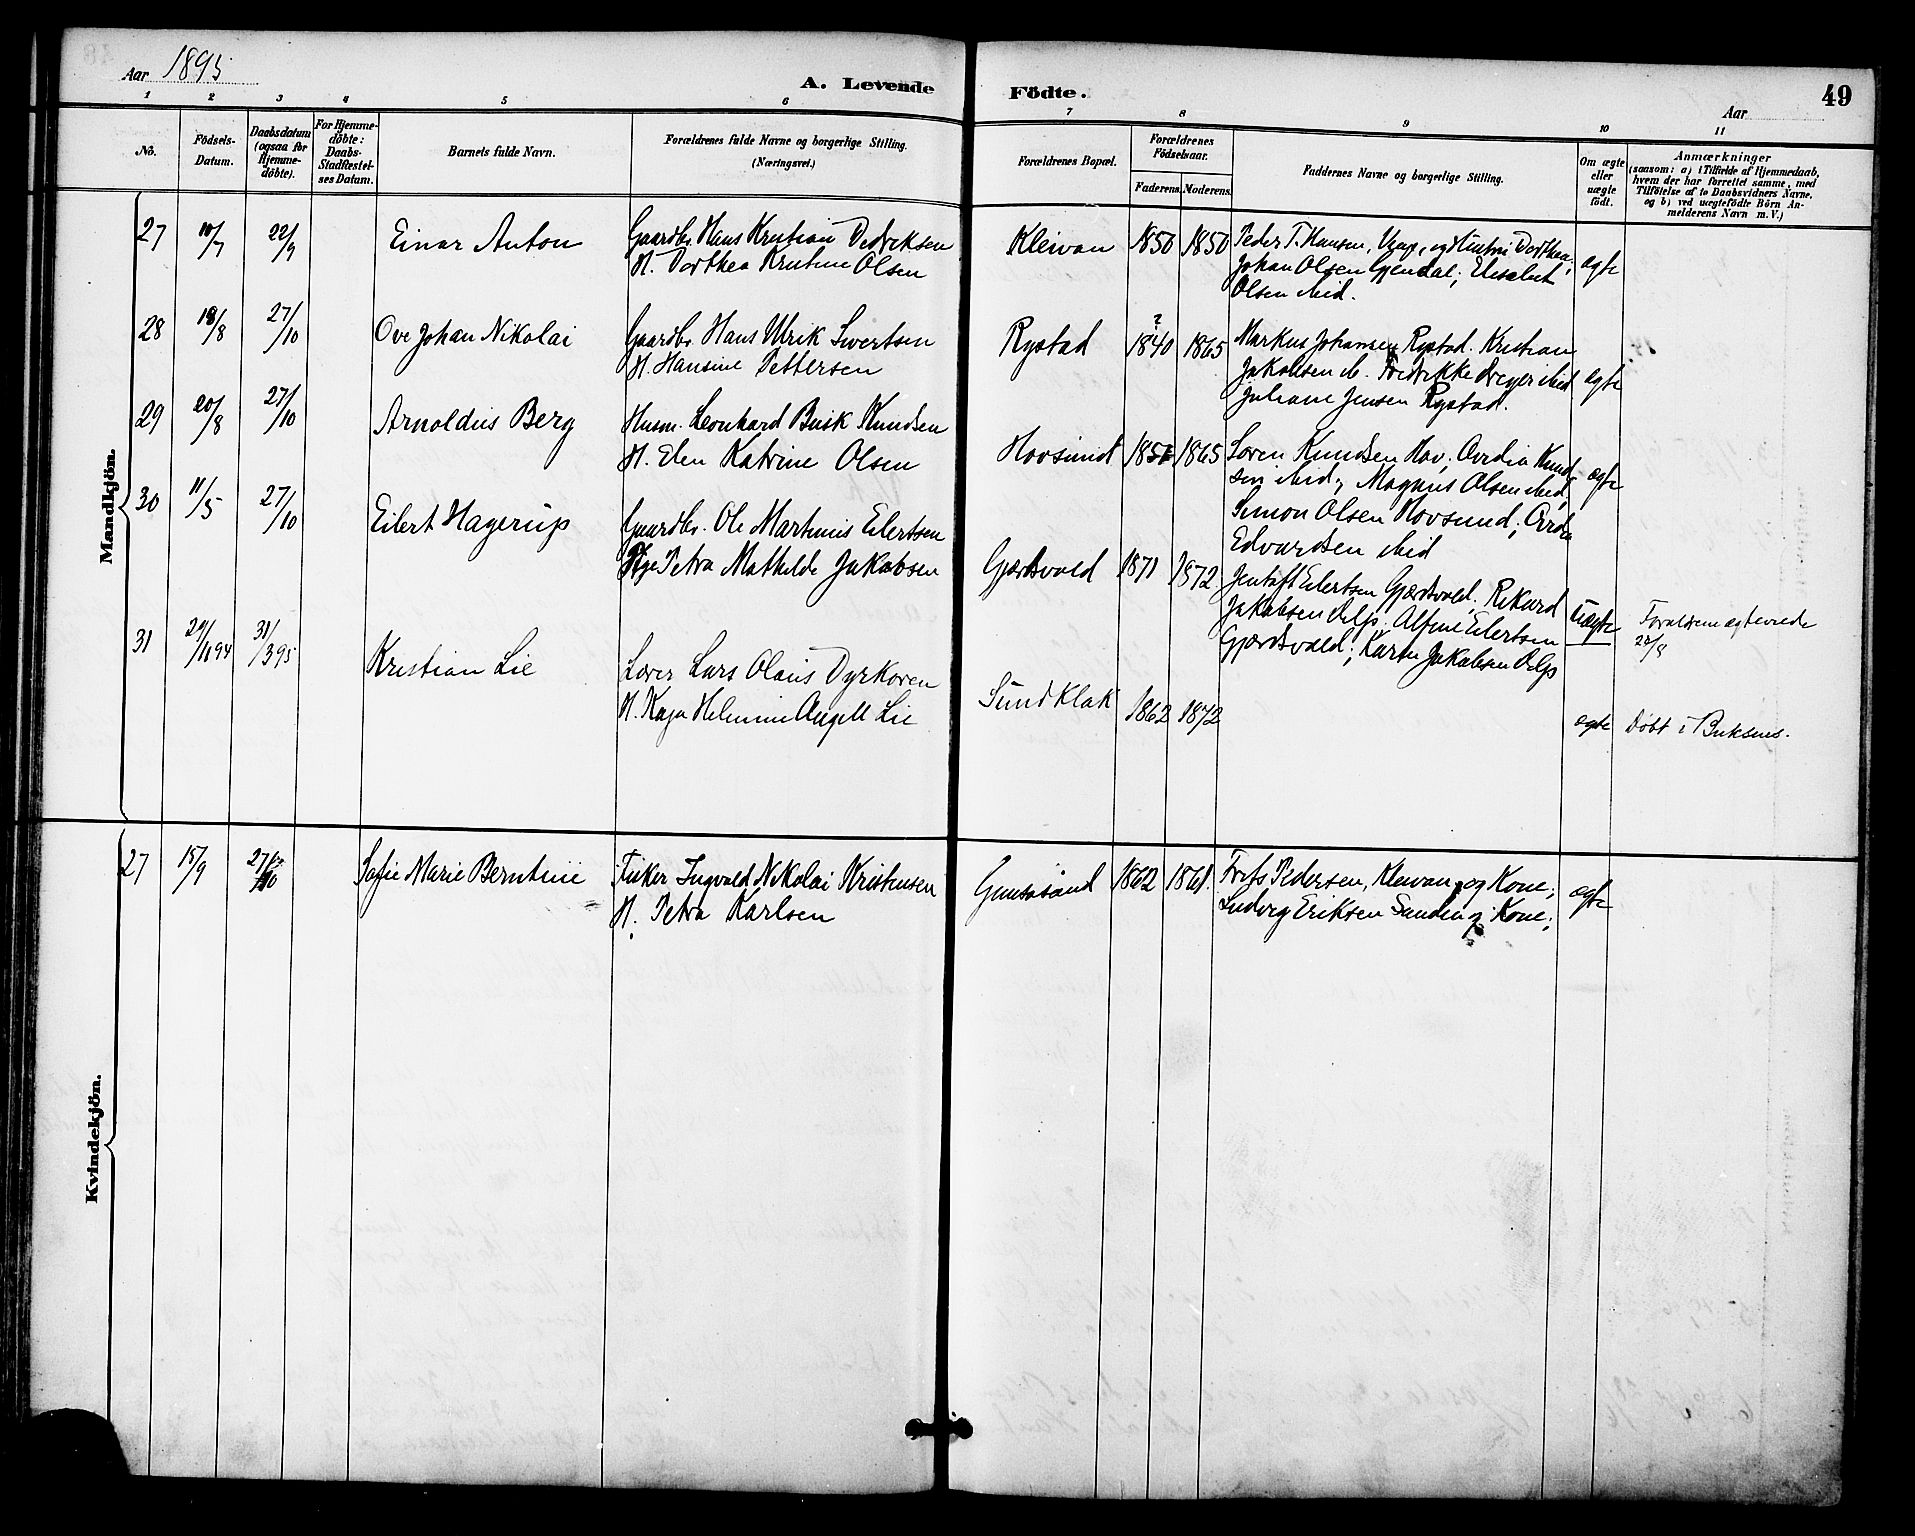 Aar 1895
A. Levende Födte.
Aar
49
1 2 3 4 5 6 7 8 9 10 11
No.
Födsels-Datum.
Daabsdatum (ogsaa for Hjemme-döbte).
For Hjemme-döbte: Daabs-Stadfæstel-ses Datum.
Barnets fulde Navn.
Forældrenes fulde Navne og borgerlige Stilling. (Næringsvei.)
Forældrenes Bopæl.
Forældrenes Födselsaar.
Faderens. Moderens.
Faddernes Navne og borgerlige Stilling.
Om ægte eller uægte födt.
Anmærkninger
(saasom: a) i Tilfælde af Hjemmedaab, hvem der har forrettet samme, med Tilföielse af to Daabsvidners Navne, og b) ved uægtefödte Börn Anmelderens Navn m. V.)
Mandkjön.
27 10/7 22/9 Einar Anton
Gaardbr. Hans Kristian Dedreksen
H. Dorthea Kristine Olsen
Kleivan 1850 1850
Peder T. Hansen, og Dorthea;
Johan Olsen Gjendal; Elisabet
Olsen ibid.
ægte
28 18/8 27/10 Ove Johan Nikolai
Gaardbr. Hans Ulrik Sivertsen
H. Hansine Pettersen
Rystad ? 1840 1865
Markus Johansen Rystad. Kristian
Jakobsen ib. Fredrikke Dreyer ibid
Juliane Jensen Rystad.
ægte
29 20/8 27/10 Arnoldus Berg
Husm. Leonhard Busk Knudsen
H. Elen Katrine Olsen
Hovsund 1865
Søren Knudsen Hov; Ovedia Knud
sen ibid; Magnus Olsen ibid;
Simon Olsen Hovsund;
Edvardsen ibid
ægte
30 11/5 27/10 Eilert Hagerup
Gaardbr. Ole Martinus Eilertsen
Pige Petra Mathilde Jakobsen
Gjærdsvold 1871 1872
Jentoft Eilertsen Gjærdsvold. Rikard
Jakobsen Delp. Alfine Eilertsen
Gjærdsvold; Karen Jakobsen Delp
uægte
Forældrene ægteviede
31 29/11 94 31/3 95 Kristian Lie
Lærer Lars Olaus Dyrkoren
H. Kaja Helmine Angell Lie
Sund Klak 1862 1872
ægte Døbt i Buksnes.
Kvindekjön.
27 15/9 27/10 Sofie Marie Berntine
Fisker Ingvald Nikolai Kristensen
H. Petra Karlsen
Gimsøsand 1862 1861
Pedersen, Kleivan og Kone;
Ludvig Eriksen Sanden og Kone;
ægte